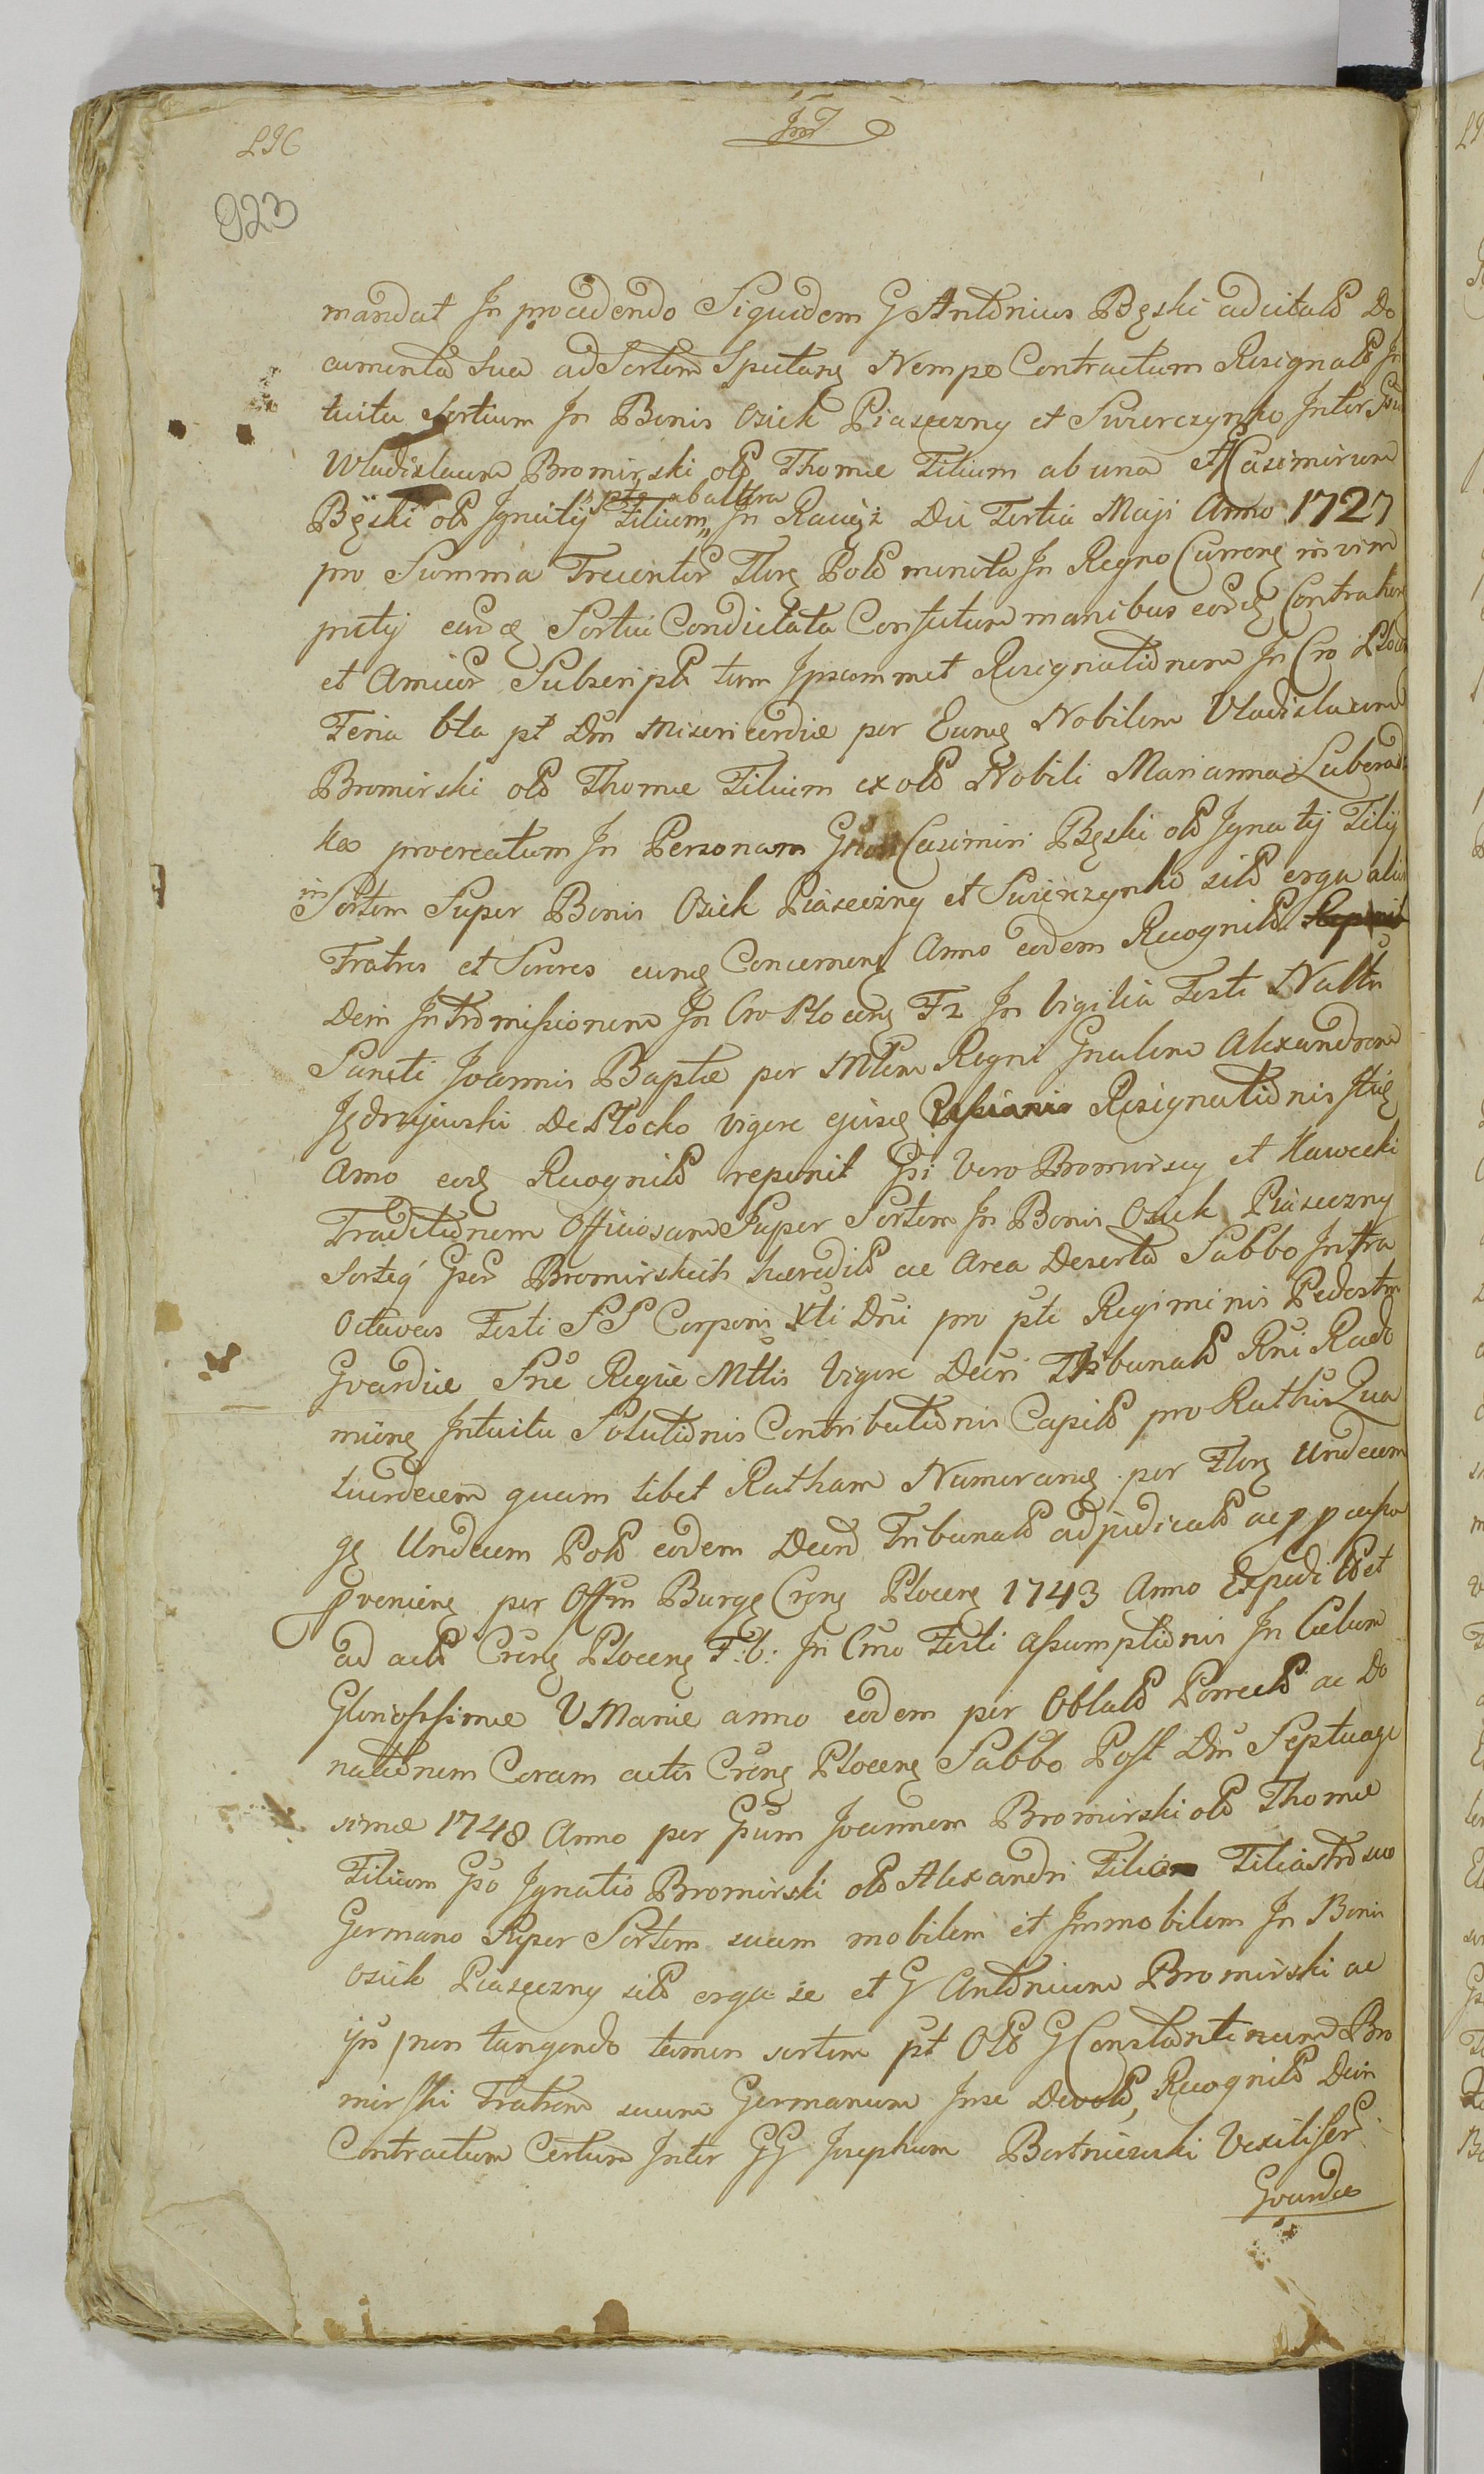 LIC
923
mandat In procedendo Siquidem G Antonius Bęski adcitats Do
cumenta sua ad Sortem Spectang Nempe Contractum Resignats In
tuitu Sortium In Bonis Osiek Piaseczny et Swierczynko Inter Gsu
Wladislaum Bromirski ols Thomæ Filium ab una et Casimirum
Bęski ols Ignatij Filium In Raciąż Die Tertia Maji Anno 1727
ab altera
pro Summa Trecentor Flor Pols moneta In Regno Curreng in vim
pretij eadg Sortis Condictata Confectum manibus eordg Contrahen
et Amicor Subscripts tum Ipsammet Resignationem In Cro Ploce
Feria 6ta pt Dm Misericordiæ per Eung Nobilem Vladislaum
Bromirski ols Thomæ Filium ex ols Nobili Marianna Luberadz
ka procreatum In Personam Casimiri Bęski ols Ignatij Filij
in
Sortem Super Bonis Osiek Piaseczny et Swierczynko sils erga alios
Fratres et Sorores eung Concerneng Anno eodem Recognits
Dein Intromissionem In Cro Ploceng F2 In Vigilia Festi Nattis
Sancti Joannis Baptæ per Mtem Regni Gnalem Alexandrum
Jędrzejewski De Płocko vigore ejusg Resignationis
Anno eodg Recognits reponit Gsi Vero Bromirscy et Kawecki
Traditionem Officiosam Super Sortem In Bonis Osiek Piaseczny
Sorteq Gsor Bromirskich hæredits ac Area Deserta Sabbo Intra
Octavas Festi SS Corporis Xti Dni pro pte Regiminis Pedestr
Gvardiæ Snæ Regiæ Mttis Vigore Decri Tribunals Rni Rado
mieng Intuitu Solutionis Contributionis Capits pro Rathis Qua
tuordecem quam libet Ratham Numerang per Flor Undecem
gs Undecem Pols eodem Decro Tribunals adjudicats ac pp
pvenieng per Offm Burgg Creng Ploceng 1743 Anno Expedits et
ad acts Creng Ploceng F: 6: In Cmo Festi Assumptionis In Cælum
Gloriosissimæ V Mariæ anno eodem per Oblats Porrects ac Do
nationem Coram actis Creng Ploceng Sabbo Post Dm Septuage
simæ 1748 Anno per Gsum Joannem Bromirski ols Thomæ
Filium Gso Ignatio Bromirski ols Alexandri Filio Filiastro suo
Germano Super Sortem suam mobilem et Immobilem In Bonis
Osiek Piaseczny sils erga se et G Antonium Bromirski ac
non tangendo tamen sortem pt Ols G Constantinum Bro
mirski Fratrem suum Germanum In se Devols, Recognits Dein
Contractum Certum Inter GG Josephum Bortniewski Vexilifer
Gvardiæ